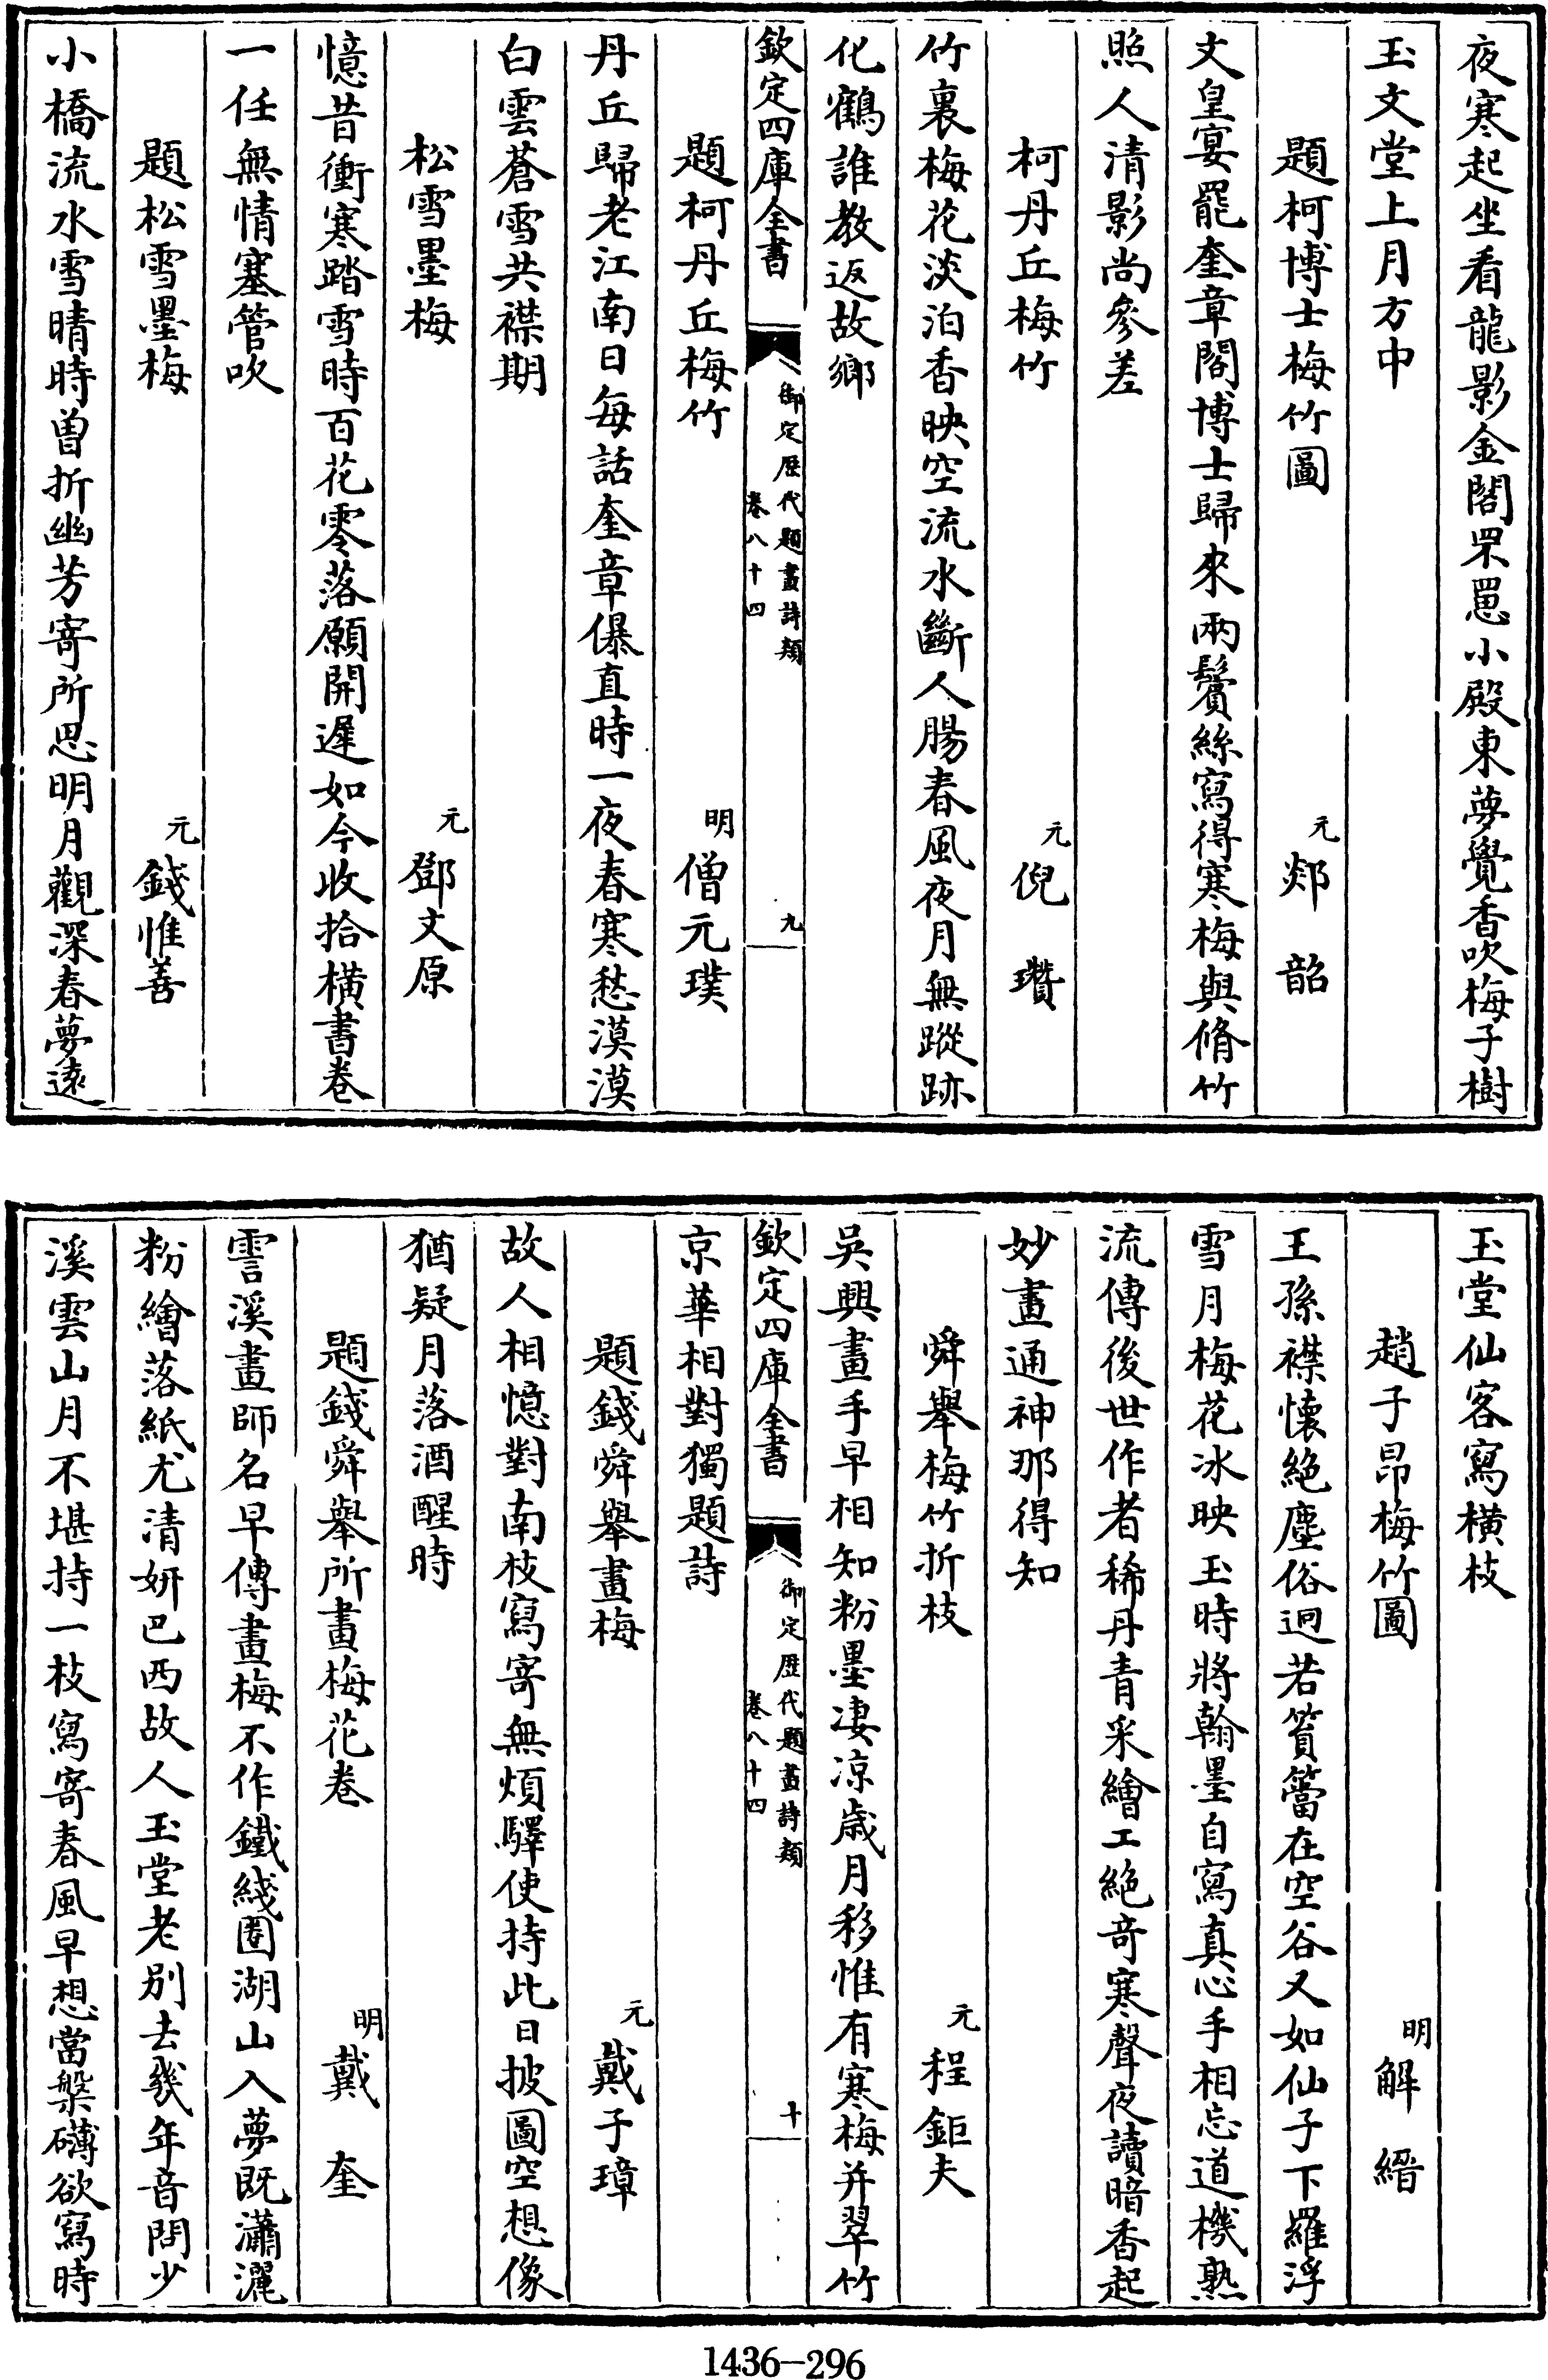 夜寒起坐看龍影金閣罘罳小殿東夢覺香吹梅子樹
玉文堂上月方中
題柯博士梅竹圖　元郯韶
文皇宴罷奎章閣博士歸來兩鬢絲寫得寒梅與脩竹
照人清影尚參差
柯丹丘梅竹　元倪瓚
竹裏梅花淡泊香映空流水斷人腸春風夜月無蹤跡
化鶴誰教返故鄉
欽定四庫全書　御定歷代題畫詩類卷八十四　九
題柯丹丘梅竹　明僧元璞
丹丘歸老江南日每話奎章儤直時一夜春寒愁漠漠
白雲蒼雪共襟期
松雪墨梅　元鄧文原
憶昔衝寒踏雪時百花零落願開遲如今收拾橫書卷
一任無情塞管吹
題松雪墨梅　元錢惟善
小橋流水雪晴時曾折幽芳寄所思明月觀深春夢遠
玉堂仙客寫橫枝
趙子昂梅竹圖　明解縉
王孫襟懷絕塵俗逈若篔簹在空谷又如仙子下羅浮
雪月梅花冰映玉時將翰墨自寫真心手相忘道機熟
流傳後世作者稀丹青采繪工絕奇寒聲夜讀暗香起
妙畫通神那得知
舜舉梅竹折枝　元程鉅夫
吳興畫手早相知粉墨凄涼歲月移惟有寒梅并翠竹
欽定四庫全書　御定歷代題畫詩類卷八十四　十
京華相對獨題詩
題錢舜舉畫梅　元戴子璋
故人相憶對南枝寫寄無煩驛使持此日披圖空想像
猶疑月落酒醒時
題錢舜舉所畫梅花卷　明戴奎
霅溪畫師名早傳畫梅不作鐵綫圈湖山入夢既瀟灑
粉繪落紙尤清妍巴西故人玉堂老別去幾年音問少
溪雲山月不堪持一枝寫寄春風早想當槃礴欲寫時
1436-296